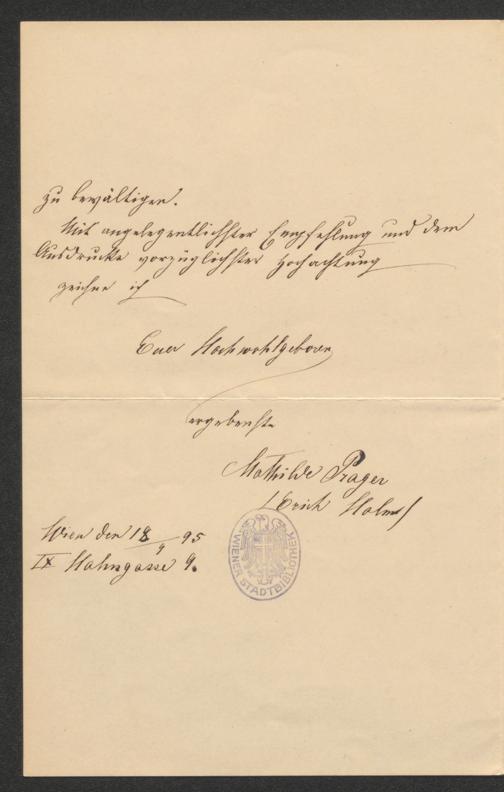 zu bewältigen.
Mit angelegentlichster Empfehlung und dem
Ausdrucke vorzüglichster Hochachtung
zeichne ich
Euer Hochwohlgeboren
ergebenste
Mathilde Prager
/Erich Holm/
Wien den 18/9 95
IX Hahngasse 9.
WIENER STADTBIBLIOTHEK